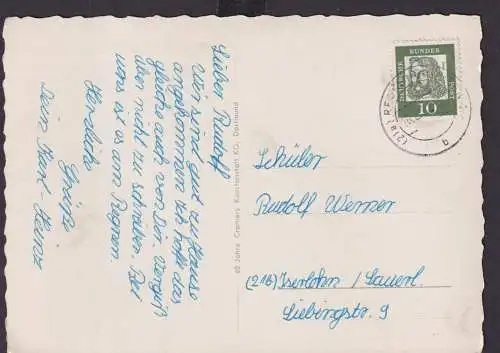 Lieber Rudolf
Wir sind gut zu Hause
angekommen. Ich hoffe das
gleiche auch von Dir. Vergiß
aber nicht zu schreiben. Bei
uns ist es am Regnen.
Herzliche
Grüße
Dein Karl-Heinz
60 Jahre Cramers Kunstanstalt KG. Dortmund
DEUTSCHE
BUNDES
POST
10
(21a)
b
Schüler
Rudolf Werner
(21b) Iserlohn / Sauerl.
Liebingstr. 9